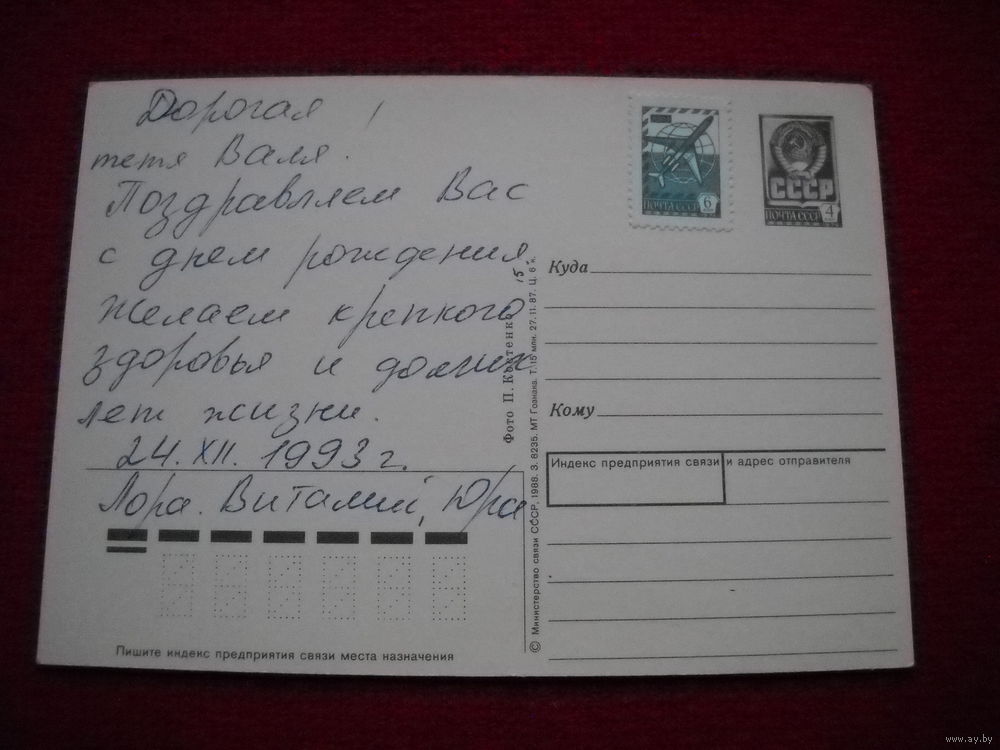 Дорогая
тетя Валя.
Поздравляем Вас
с днем рождения
Желаем крепкого
здоровья и долгих
лет жизни.
24. XII. 1993 г.
Лора. Виталий, Юра
Пишите индекс предприятия связи места назначения
Фото П. Костенко
© Министерство связи СССР, 1988. З. 8235. МТ Гознака. Т. 15 млн. 27.11.87. Ц. 5 к.
ПОЧТА СССР 6
СССР
ПОЧТА СССР 4
Куда
Кому
Индекс предприятия связи и адрес отправителя
www.ay.by